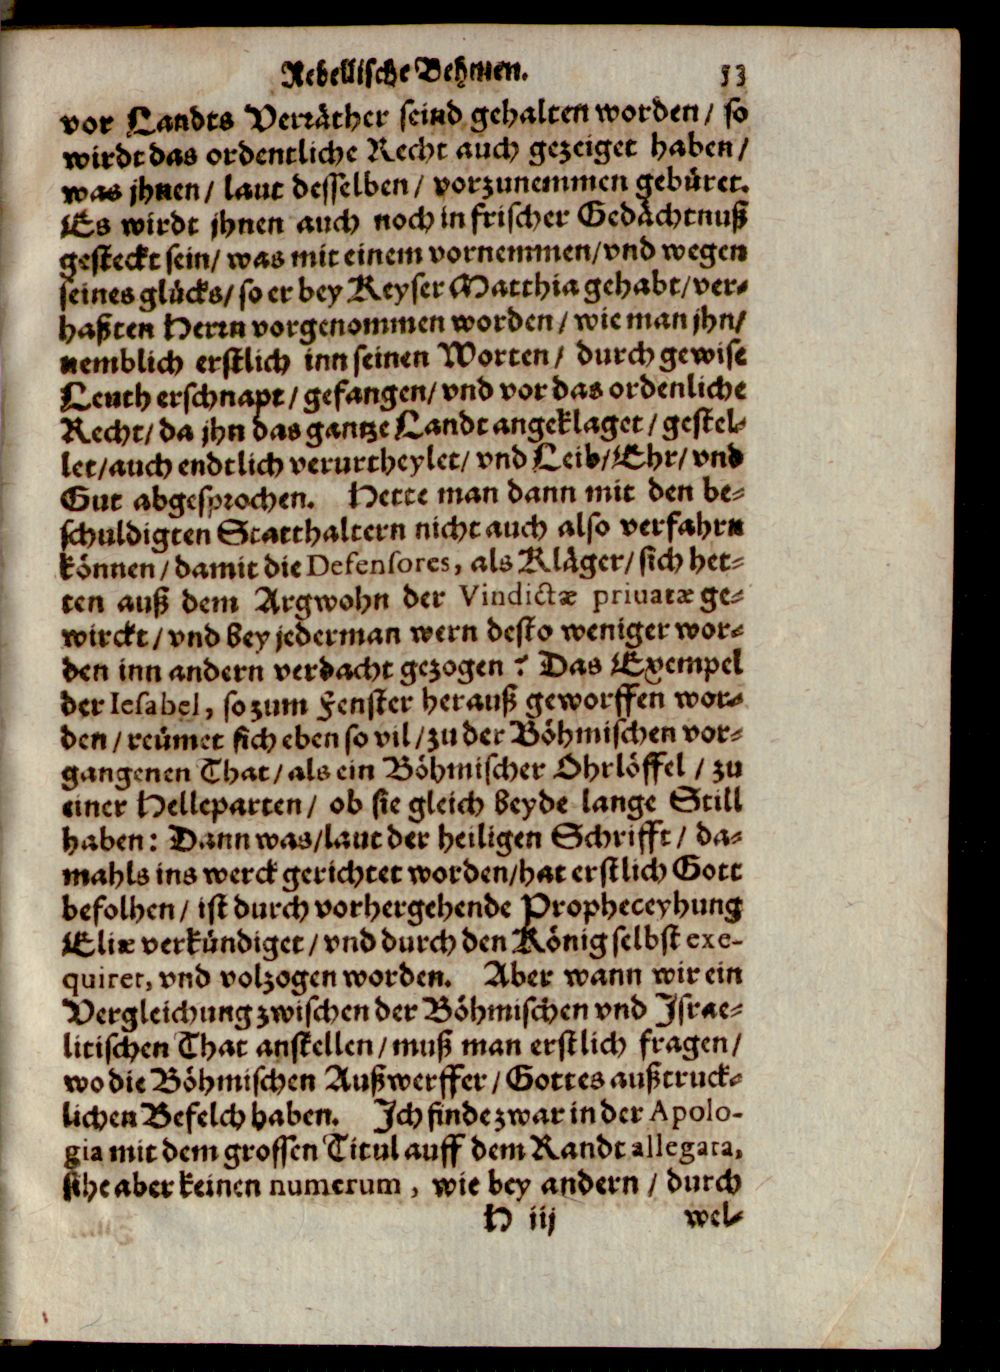 Rebellische Behmen. 53
vor Landts Verräther seind gehalten worden / so
wirdt das ordentliche Recht auch gezeiget haben /
was jhnen / laut desselben / vorzunemmen gebüret.
Es wirdt jhnen auch noch in frischer Gedächtnuß
gesteckt sein / was mit einem vornemmen / vnd wegen
seines glücks / so er bey Keyser Matthia gehabt / ver⸗
haßten Herrn vorgenommen worden / wie man jhn /
nemblich erstlich inn seinen Worten / durch gewise
Leuth erschnapt / gefangen / vnd vor das ordenliche
Recht / da jhn das gantze Landt angeklaget / gestel⸗
let / auch endtlich verurtheylet / vnd Leib / Ehr / vnd
Gut abgesprochen. Hette man dann mit den be⸗
schuldigten Statthaltern nicht auch also verfahrn
können / damit die Defensores, als Kläger / sich het⸗
ten auß dem Argwohn der Vindictæ priuatæ ge⸗
wirckt / vnd bey jederman wern desto weniger wor⸗
den inn andern verdacht gezogen? Das Exempel
der Iesabel, so zum Fenster herauß geworffen wor⸗
den / reümet sich eben so vil / zu der Böhmischen vor⸗
gangenen That / als ein Böhmischer Ohrlöffel / zu
einer Helleparten / ob sie gleich beyde lange Still
haben: Dann was / laut der heiligen Schrifft / da⸗
mahls ins werck gerichtet worden / hat erstlich Gott
befolhen / ist durch vorhergehende Propheceyhung
Eliæ verkündiget / vnd durch den König selbst exe-
quiret, vnd volzogen worden. Aber wann wir ein
Vergleichung zwischen der Böhmischen vnd Israe⸗
litischen That anstellen / muß man erstlich fragen /
wo die Böhmischen Außwerffer / Gottes außtruck⸗
lichen Befelch haben. Ich finde zwar in der Apolo-
gia mit dem grossen Titul auff dem Randt allegata,
sihe aber keinen numerum, wie bey andern / durch
H iij wel⸗